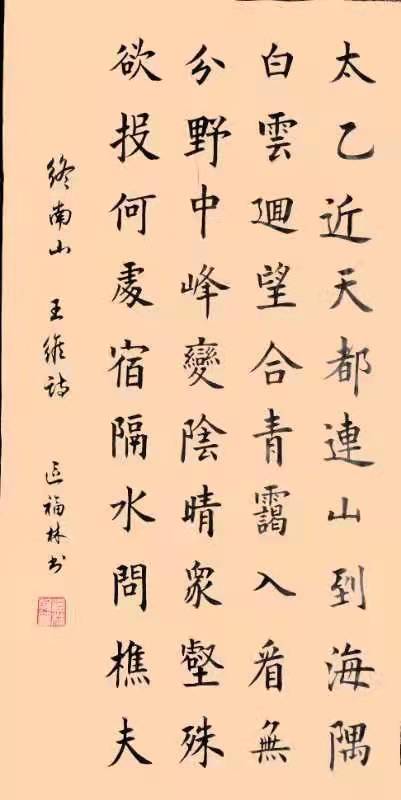 太乙近天都連山到海隅
白雲迴望合青靄入看無
分野中峰變陰晴眾壑殊
欲投何處宿隔水問樵夫
終南山 王維詩 福林书